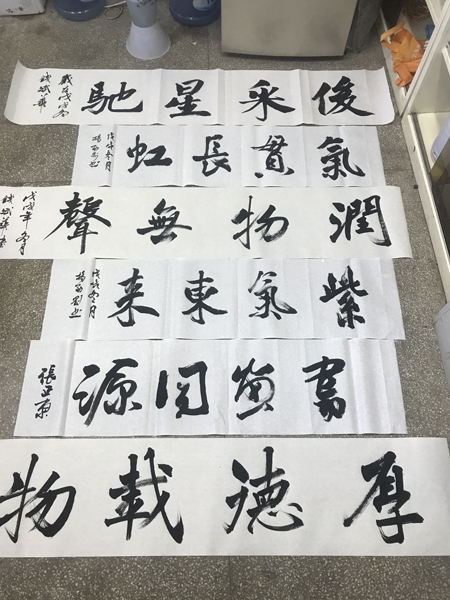 俊采星馳
歲在戊戌冬
氣貫長虹
戊戌冬月
潤物無聲
戊戌年冬月
紫氣東来
戊戌冬月
書畫同源
厚德載物